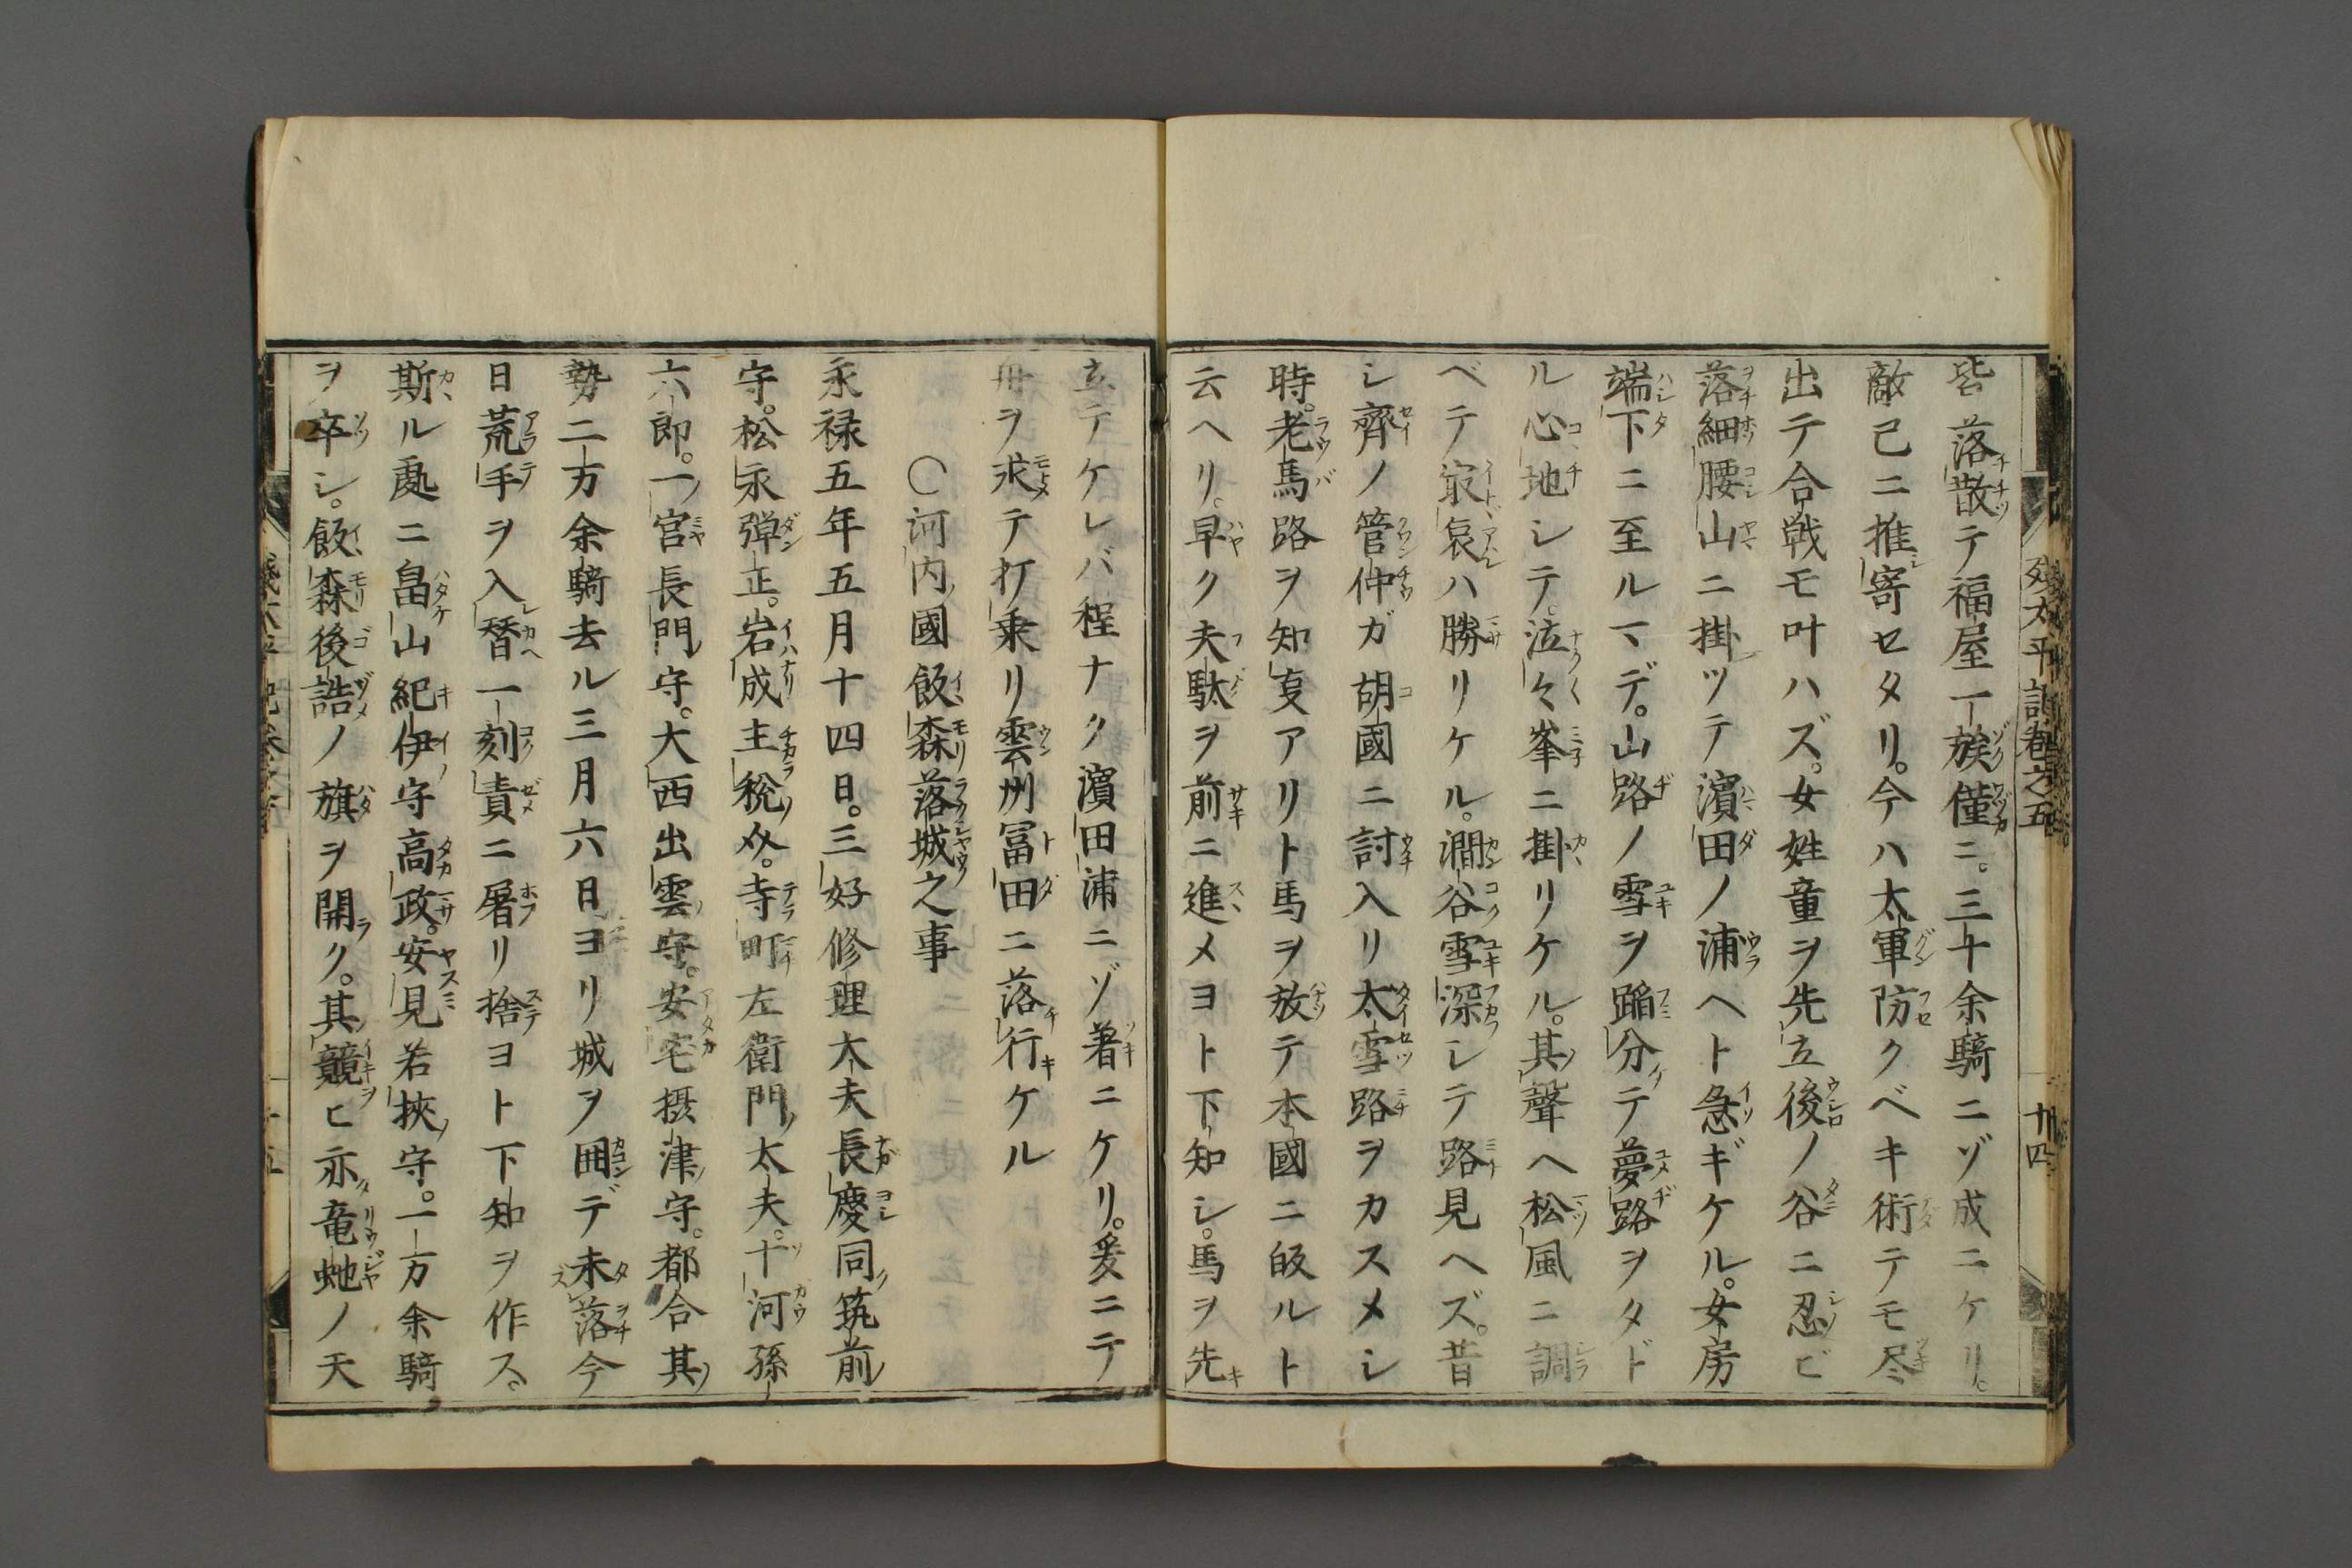 皆落散テ福屋一族僅ニ。三十余騎ニゾ成ニケリ。
敵已ニ推寄セタリ。今ハ太軍防クベキ術テモ尽
出テ合戦モ叶ハズ。女姓童ヲ先立後ノ谷ニ忍ビ
落細腰山ニ掛ツテ濱田ノ浦ヘト急ギケル。女房
端下ニ至ルマデ。山路ノ雪ヲ蹈分テ夢路ヲタド
ル心地シテ。泣々峯ニ掛リケル。其聲ヘ松風ニ調
ベテ最哀ハ勝リケル。澗谷雪深シテ路見ヘズ。昔
シ齊ノ管仲ガ胡國ニ討入リ太雪路ヲカスメシ
時。老馬路ヲ知夏アリト馬ヲ放テ本國ニ皈ルト
云ヘリ。早ク夫駄ヲ前ニ進メヨト下知シ。馬ヲ先
立テケレバ程ナク濱田浦ニゾ著ニケリ。爰ニテ
舟ヲ求テ打乗リ雲州冨田ニ落行ケル
○河内國飯森落城之事
永禄五年五月十四日。三好修理太夫長慶同筑前
守。松永弾正。岩成主税介。寺町左衛門太夫。十河孫
六郎。一宮長門守。大西出雲守。安宅摂津守。都合其
勢二万余騎去ル三月六日ヨリ城ヲ囲デ未落今
日荒手ヲ入替一刻責ニ屠リ捨ヨト下知ヲ作ス。
斯ル處ニ畠山紀伊守高政。安見若挾守。一万余騎
ヲ卒シ。飯森後詰ノ旗ヲ開ク。其競ヒ亦竜虵ノ天
残太平記巻之五
十四